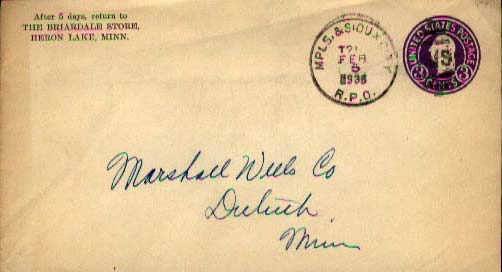 After 5 days, return to
THE BRIARDALE STORE,
HERON LAKE, MINN.
MPLS. & SIOUX CITY
T21
FEB
5
1936
R.P.O.
UNITED STATES POSTAGE
3 CENTS 3
Marshall Wells Co
Duluth
Minn